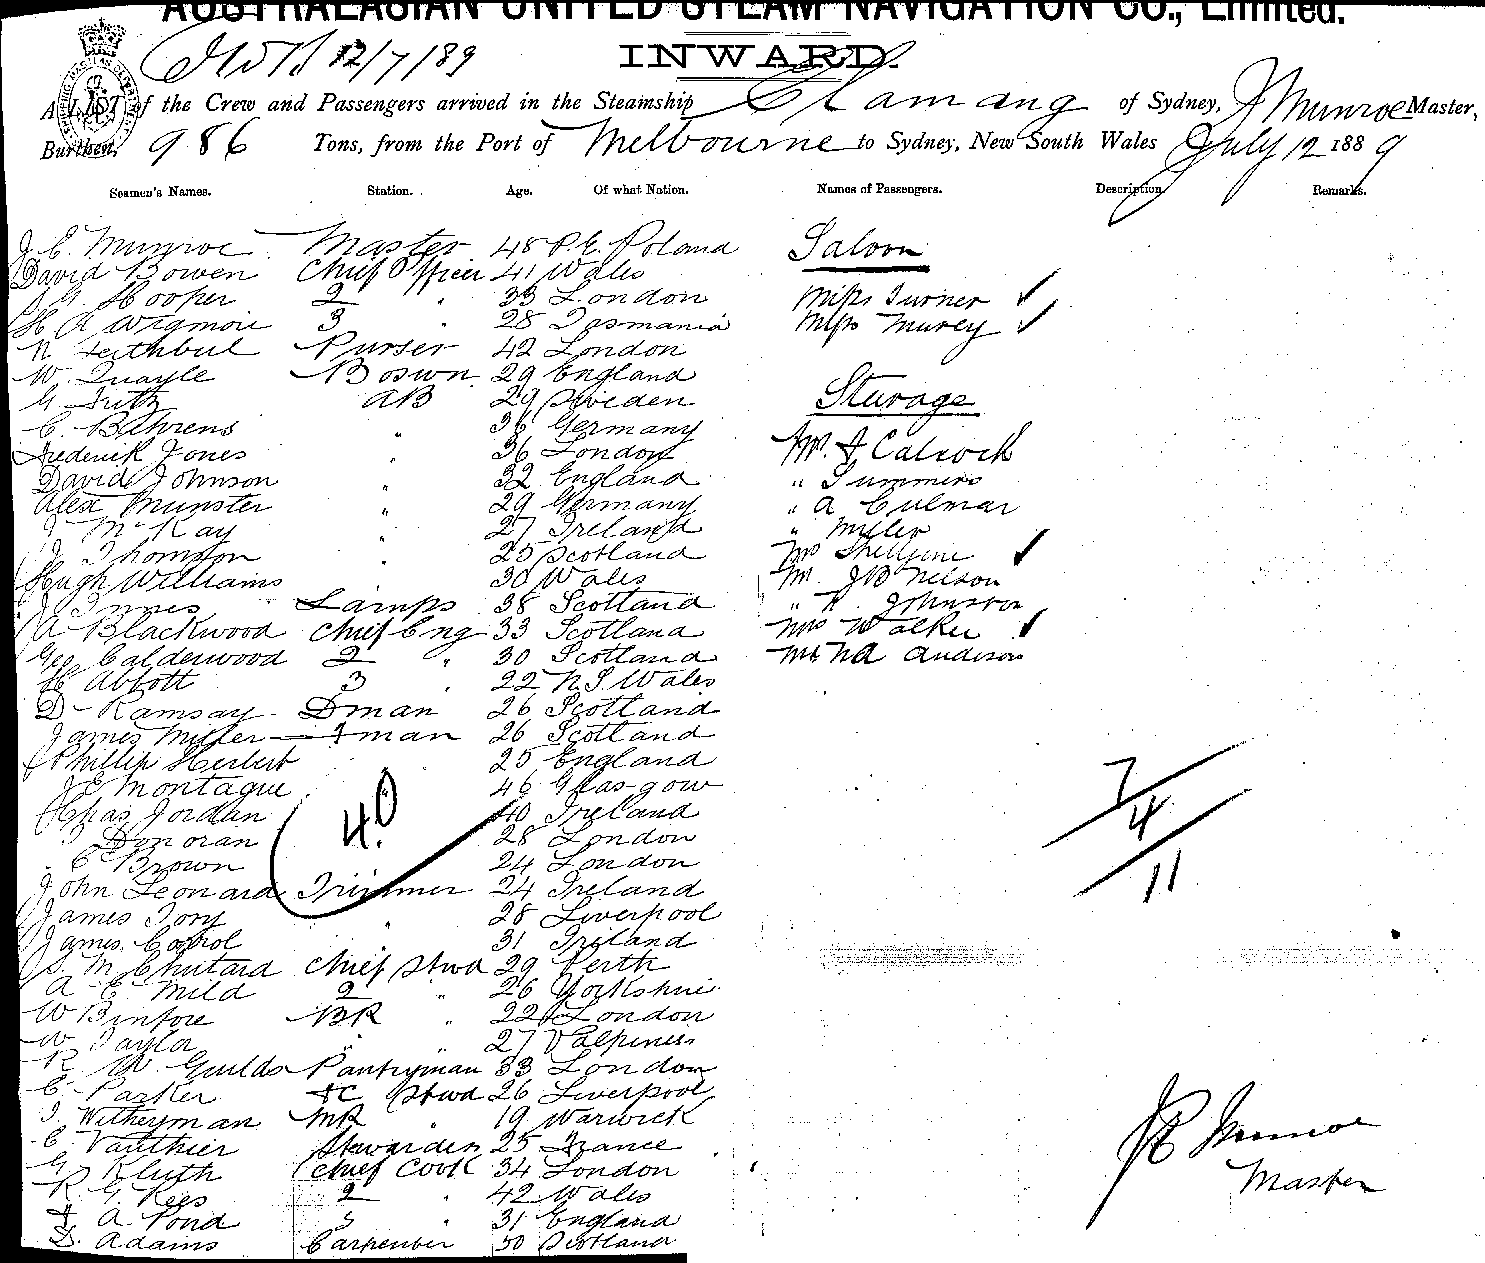 AUSTRALASIAN UNITED STEAM NAVIGATION CO., Limited.
12/7/89
INWARD.
A LIST of the Crew and Passengers arrived in the Steamship Elamang of Sydney, J Munroe Master,
Burthen, 986 Tons, from the Port of Melbourne to Sydney, New South Wales July 12 1889
Seamen's Names. Station. Age. Of what Nation. Names of Passengers. Description Remarks.
J. E. Munroe Master 48 P. E. Poland Saloon
David Bowen Chief Officer 41 Wales
Hooper 2 " 33 London Miss Turner ✓
H A Wigmore 3 " 28 Tasmania Miss Murey ✓
N Feithbul Purser 42 London
W. Quayle Boswn 29 England
G Fritz AB 29 Sweden Sturage
C. Bahrens " 36 Germany
Frederick Jones " 36 London Mr. J Calcock
David Johnson " 32 England " Summers
Alex Munster " 29 Germany " A Culmar
J McKay " 27 Ireland " Miller
J Thomson " 25 Scotland Mrs ✓
Hugh Williams 30 Wales Mr. J B Nelson
J Innes Lamps 38 Scotland " H. Johnston
A Blackwood Chief Eng 33 Scotland Mrs Walker ✓
Geo Calderwood 2 " 30 Scotland Mr N A Anderson
H Abbott 3 " 22 N. S. Wales
D - Ramsay - Dman 26 Scotland
James Miller - Fman 26 Scotland
Phillip Herbert 25 England
J E Montague 46 Glasgow
Chas Jordan 40 Ireland
40
Donoran 28 London
7/4/11
C Brown 24 London
John Leonard Trimmer 24 Ireland
James Tory " 28 Liverpool
James Carrol 31 Ireland
S. M Chutard Chief Stwd 29 Perth
A E Mild 2 " 26 Yorkshire
W Binfore BR " 22 London
W Taylor " " 27 Valpiness
R W Guilds Pantryman 33 London
C Parker FC Stwd 26 Liverpool
J Witheyman MR 19 Warwick
C Vauthier Stwarden 25 France
J E Munroe
G Kluth Chief Cook 34 London
Master
R G. Rees 2 " 42 Wales
F A. Pond 3 " 31 England
D. Adams Carpenter 50 Scotland